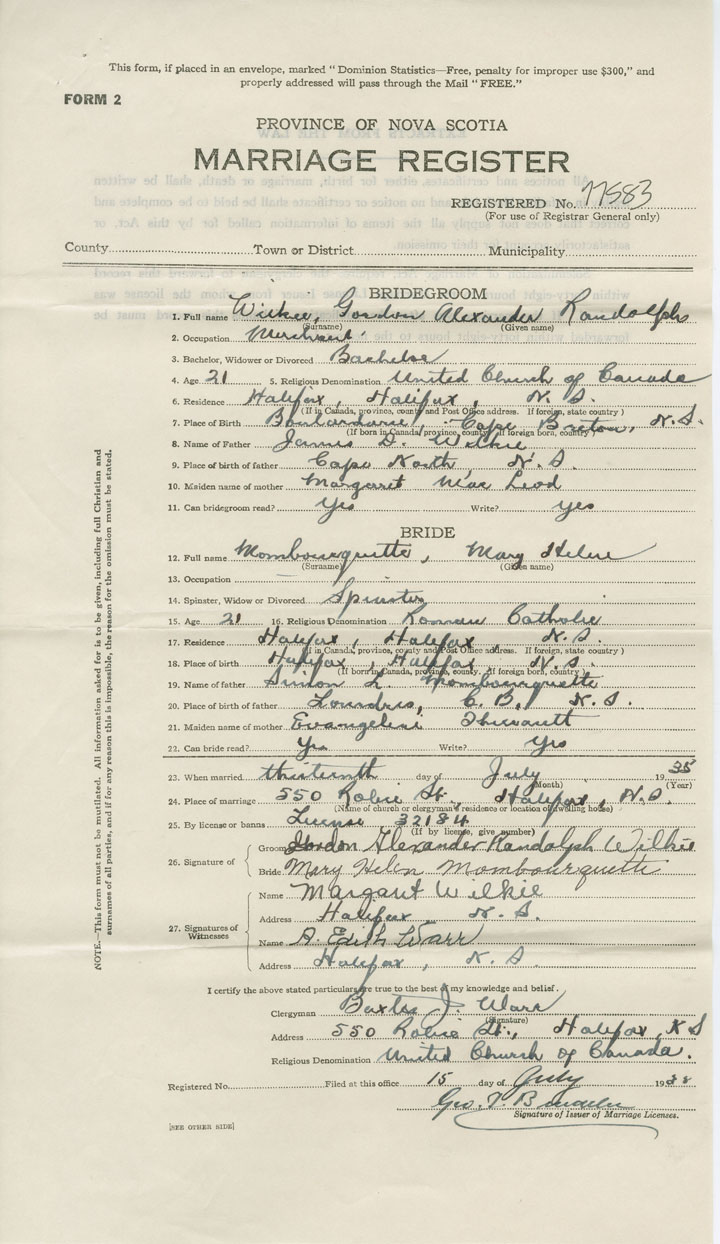 This form, if placed in an envelope, marked "Dominion Statistics—Free, penalty for improper use $300," and
properly addressed will pass through the Mail "FREE."
FORM 2
PROVINCE OF NOVA SCOTIA
MARRIAGE REGISTER
REGISTERED No. 77583
(For use of Registrar General only)
County Town or District Municipality
BRIDEGROOM
1. Full name Wilkie, Gordon Alexander Randolph
(Surname) (Given name)
2. Occupation Merchant
3. Bachelor, Widower or Divorced Bachelor
4. Age 21 5. Religious Denomination United Church of Canada
6. Residence Halifax, Halifax, N. S.
(If in Canada, province, county and Post Office address. If foreign, state country)
7. Place of Birth Boulardarie, Cape Breton, N. S.
(If born in Canada, province, county, if foreign born, country)
8. Name of Father James D. Wilkie
9. Place of birth of father Cape North, N. S.
10. Maiden name of mother Margaret Mac Leod
11. Can bridegroom read? Yes Write? yes
BRIDE
12. Full name Mombourquette, Mary Helen
(Surname) (Given name)
13. Occupation
14. Spinster, Widow or Divorced Spinster
15. Age 21 16. Religious Denomination Roman Catholic
17. Residence Halifax, Halifax N. S.
(If in Canada, province, county and Post Office address. If foreign, state country)
18. Place of birth Halifax, Halifax N. S.
(If born in Canada, province, county, if foreign born, country)
19. Name of father Simon L. Mombourquette
20. Place of birth of father C. B., N. S.
21. Maiden name of mother Evangeline
22. Can bride read? Yes Write? Yes
23. When married thirteenth day of July 1935
(Month) (Year)
24. Place of marriage 550 Robie St., Halifax, N. S.
(Name of church or clergyman's residence or location of dwelling house)
25. By license or banns License 32184
(If by license, give number)
26. Signature of
Groom Gordon Alexander Randolph Wilkie
Bride Mary Helen Mombourquette
27. Signatures of Witnesses
Name Margaret Wilkie
Address Halifax N. S.
Name A. Edith Warr
Address Halifax, N. S.
I certify the above stated particulars are true to the best of my knowledge and belief.
Clergyman Baxter J. Warr
(Signature)
Address 550 Robie St., Halifax, N S
Religious Denomination United Church of Canada.
Registered No. Filed at this office 15 day of July 193
Geo.
Signature of Issuer of Marriage Licenses.
[SEE OTHER SIDE]
NOTE.—This form must not be mutilated. All information asked for is to be given, including full Christian and
surnames of all parties, and if for any reason this is impossible, the reason for the omission must be stated.